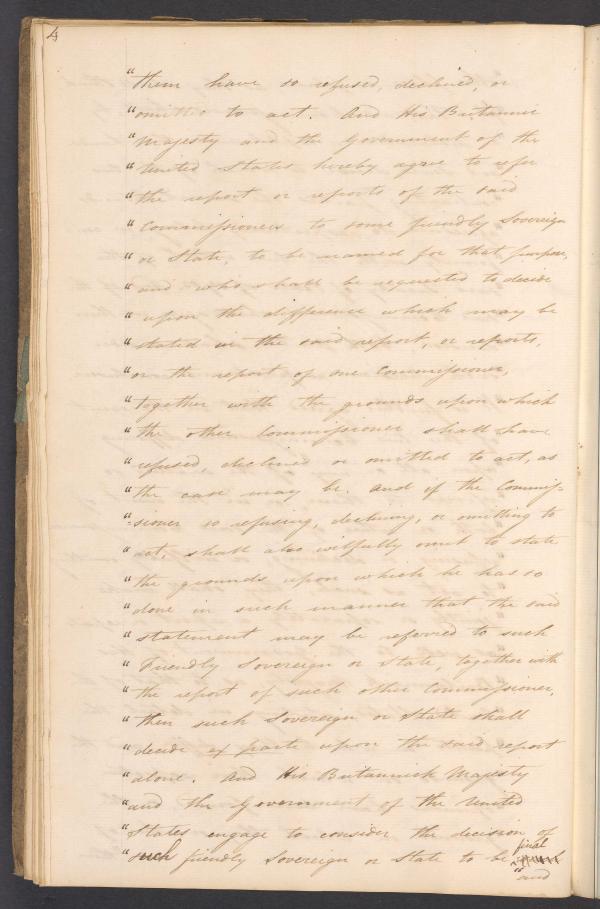 4
"them have so refused, declined, or
"omitted to act. And His Britannic
"Majesty and the Government of the
"United States hereby agree to refer
"the report or reports of the said
"Commissioners to some friendly Sovereign
"or State, to be named for that purpose,
"and who shall be requested to decide
"upon the difference which may be
"stated in the said report, or reports,
"or the report of one Commissioner,
"together with the grounds upon which
"the other Commissioner shall have
"refused, declined or omitted to act, as
"the case may be. And if the Commis-
"-sioner so refusing, declining, or omitting to
"act, shall also wilfully omit to state
"the grounds upon which he has so
"done in such manner that the said
"statement may be referred to such
"Friendly Sovereign or State, together with
"the report of such other Commissioner,
"then such Sovereign or State shall
"decide ex parte upon the said report
"alone. And His Britannick Majesty
"and the Government of the United
"States engage to consider the decision of
"such friendly Sovereign or State to be final
"and